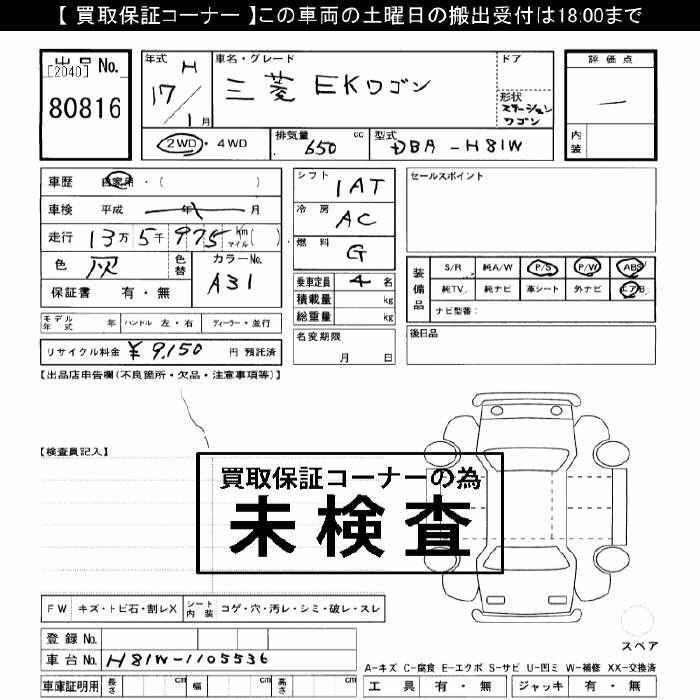 【 買取保証コーナー 】この車両の土曜日の搬出受付は18:00まで
出品 No.
[2040]
80816
年式 H
17 / 1月
車名・グレード
三菱 EKワゴン
ドア
形状
ステーション
ワゴン
評価点
―
内装
2WD ・ 4WD
排気量 650 cc
型式 DBA - H81W
車歴 自家用 ・ ( )
車検 平成 年 月
走行 13万 5千 975 km マイル ( )
色 灰
色替
カラーNo.
A31
保証書 有 ・ 無
シフト 1AT
冷房 AC
燃料 G
乗車定員 4 名
積載量 kg
総重量 kg
セールスポイント
装備品
S/R 純A/W P/S P/W ABS
純TV 純ナビ 革シート 外ナビ エアB
ナビ型番:
モデル年式 年 ハンドル 左・右 ディーラー・並行
名変期限
月 日
後日品
リサイクル料金 ¥9,150 円 預託済
【出品店申告欄(不良箇所・欠品・注意事項等)】
【検査員記入】
買取保証コーナーの為
未検査
FW キズ・トビ石・割レX シート内装 コゲ・穴・汚レ・シミ・破レ・スレ
スペア
登録 No.
車台 No. H81W-1105536
車庫証明用 長さ cm 幅 cm 高さ cm
A-キズ C-腐食 E-エクボ S-サビ U-凹ミ W-補修 XX-交換済
工具 有 ・ 無 ジャッキ 有 ・ 無